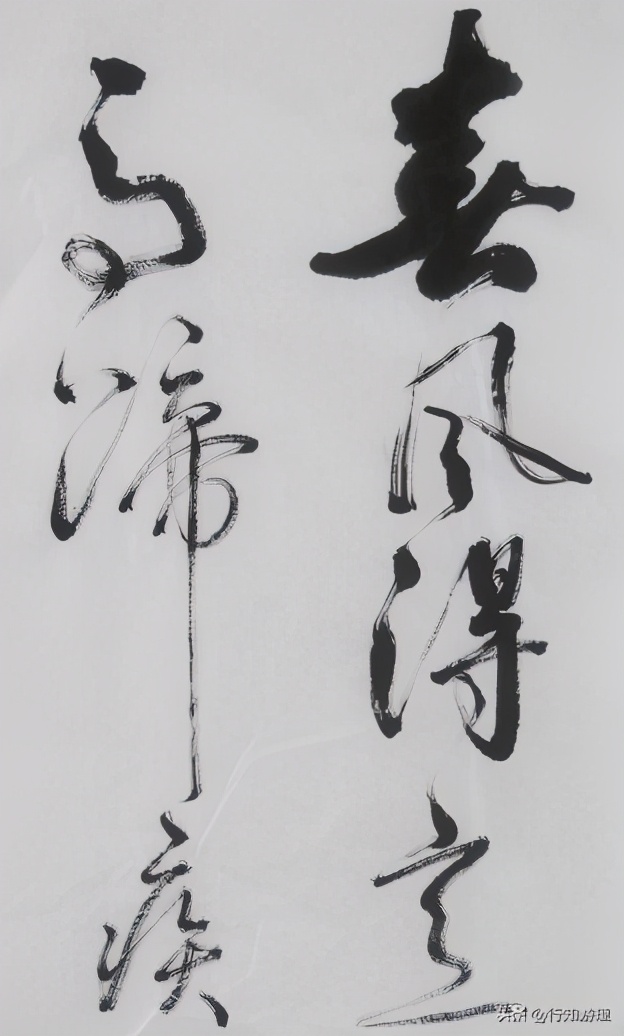 春风得意
马蹄疾
头条 @行知原理